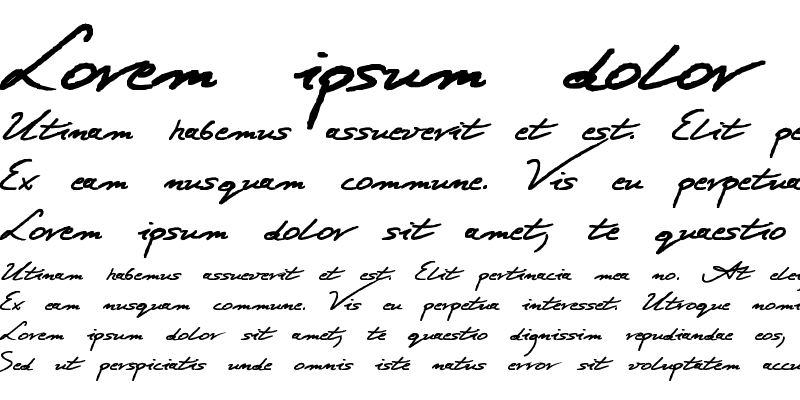 Lorem ipsum dolor
Utinam habemus assueverit et est. Elit pe
Ex eam nusquam commune. Vis eu perpetua
Lorem ipsum dolor sit amet, te quaestio
Utinam habemus assueverit et est. Elit pertinacia mea no. At elei
Ex eam nusquam commune. Vis eu perpetua interesset. Utroque nomi
Lorem ipsum dolor sit amet, te quaestio dignissim repudiandae eos,
Sed ut perspiciatis unde omnis iste natus error sit voluptatem accu